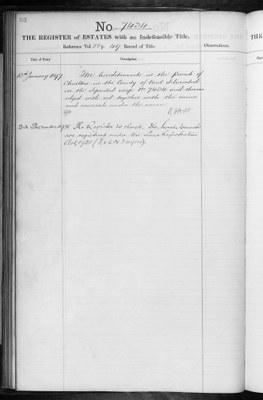 No 7434
THE REGISTER of ESTATES with an Indefeasible Title.
Reference Vol. 49 Record of Title.
Observations.
Date of Entry
Description
January 1897
The hereditaments in the parish of
in the County of Kent delineated
on the deposited map No 7434 and thereon
edged with red together with the mines
and minerals under the same
The Register is closed. The lands
are registered under the Land Registration
Act, 1925